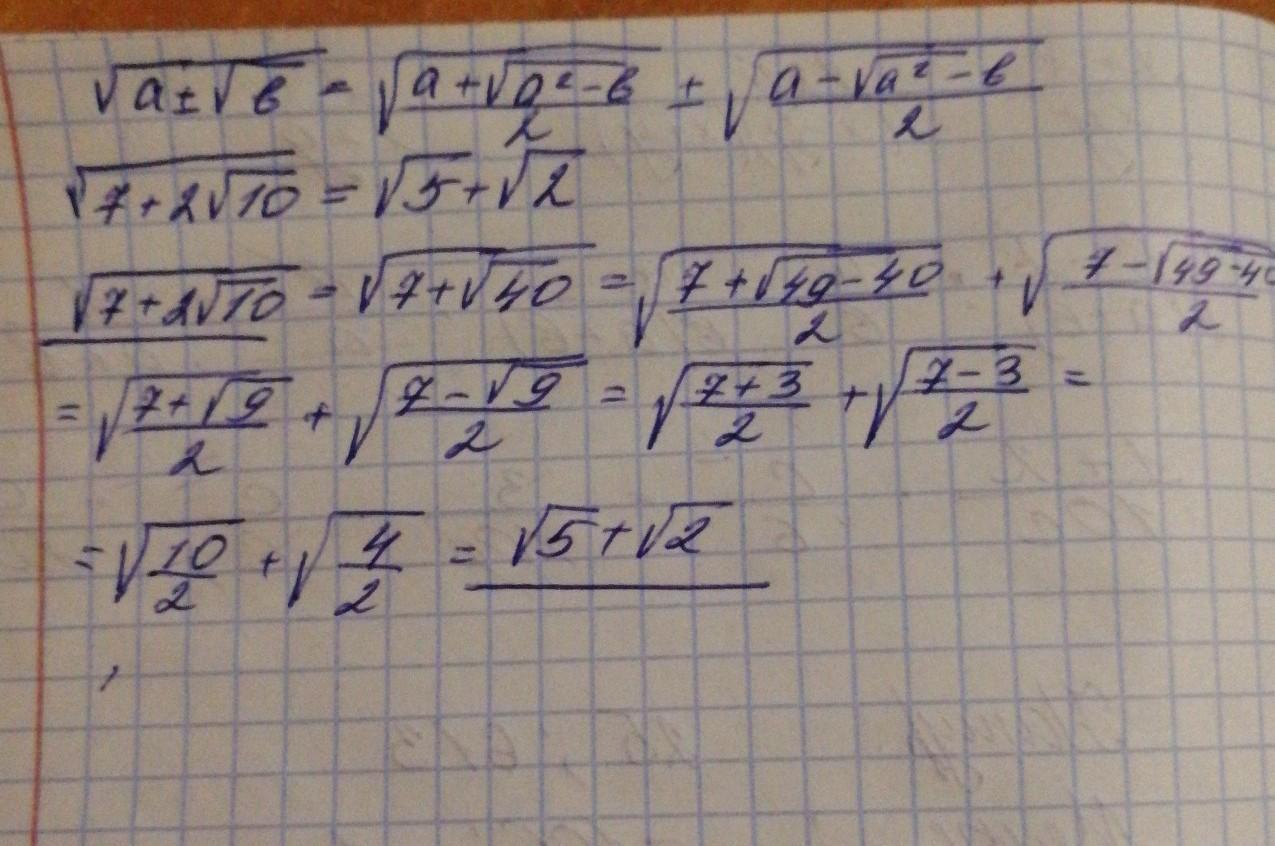 √(a±√b) = √((a+√(a²-b))/2) ± √((a-√(a²-b))/2)
√(7+2√10) = √5+√2
√(7+2√10) = √(7+√40) = √((7+√(49-40))/2) + √((7-√(49-40))/2)
= √((7+√9)/2) + √((7-√9)/2) = √((7+3)/2) + √((7-3)/2) =
= √(10/2) + √(4/2) = √5+√2
,